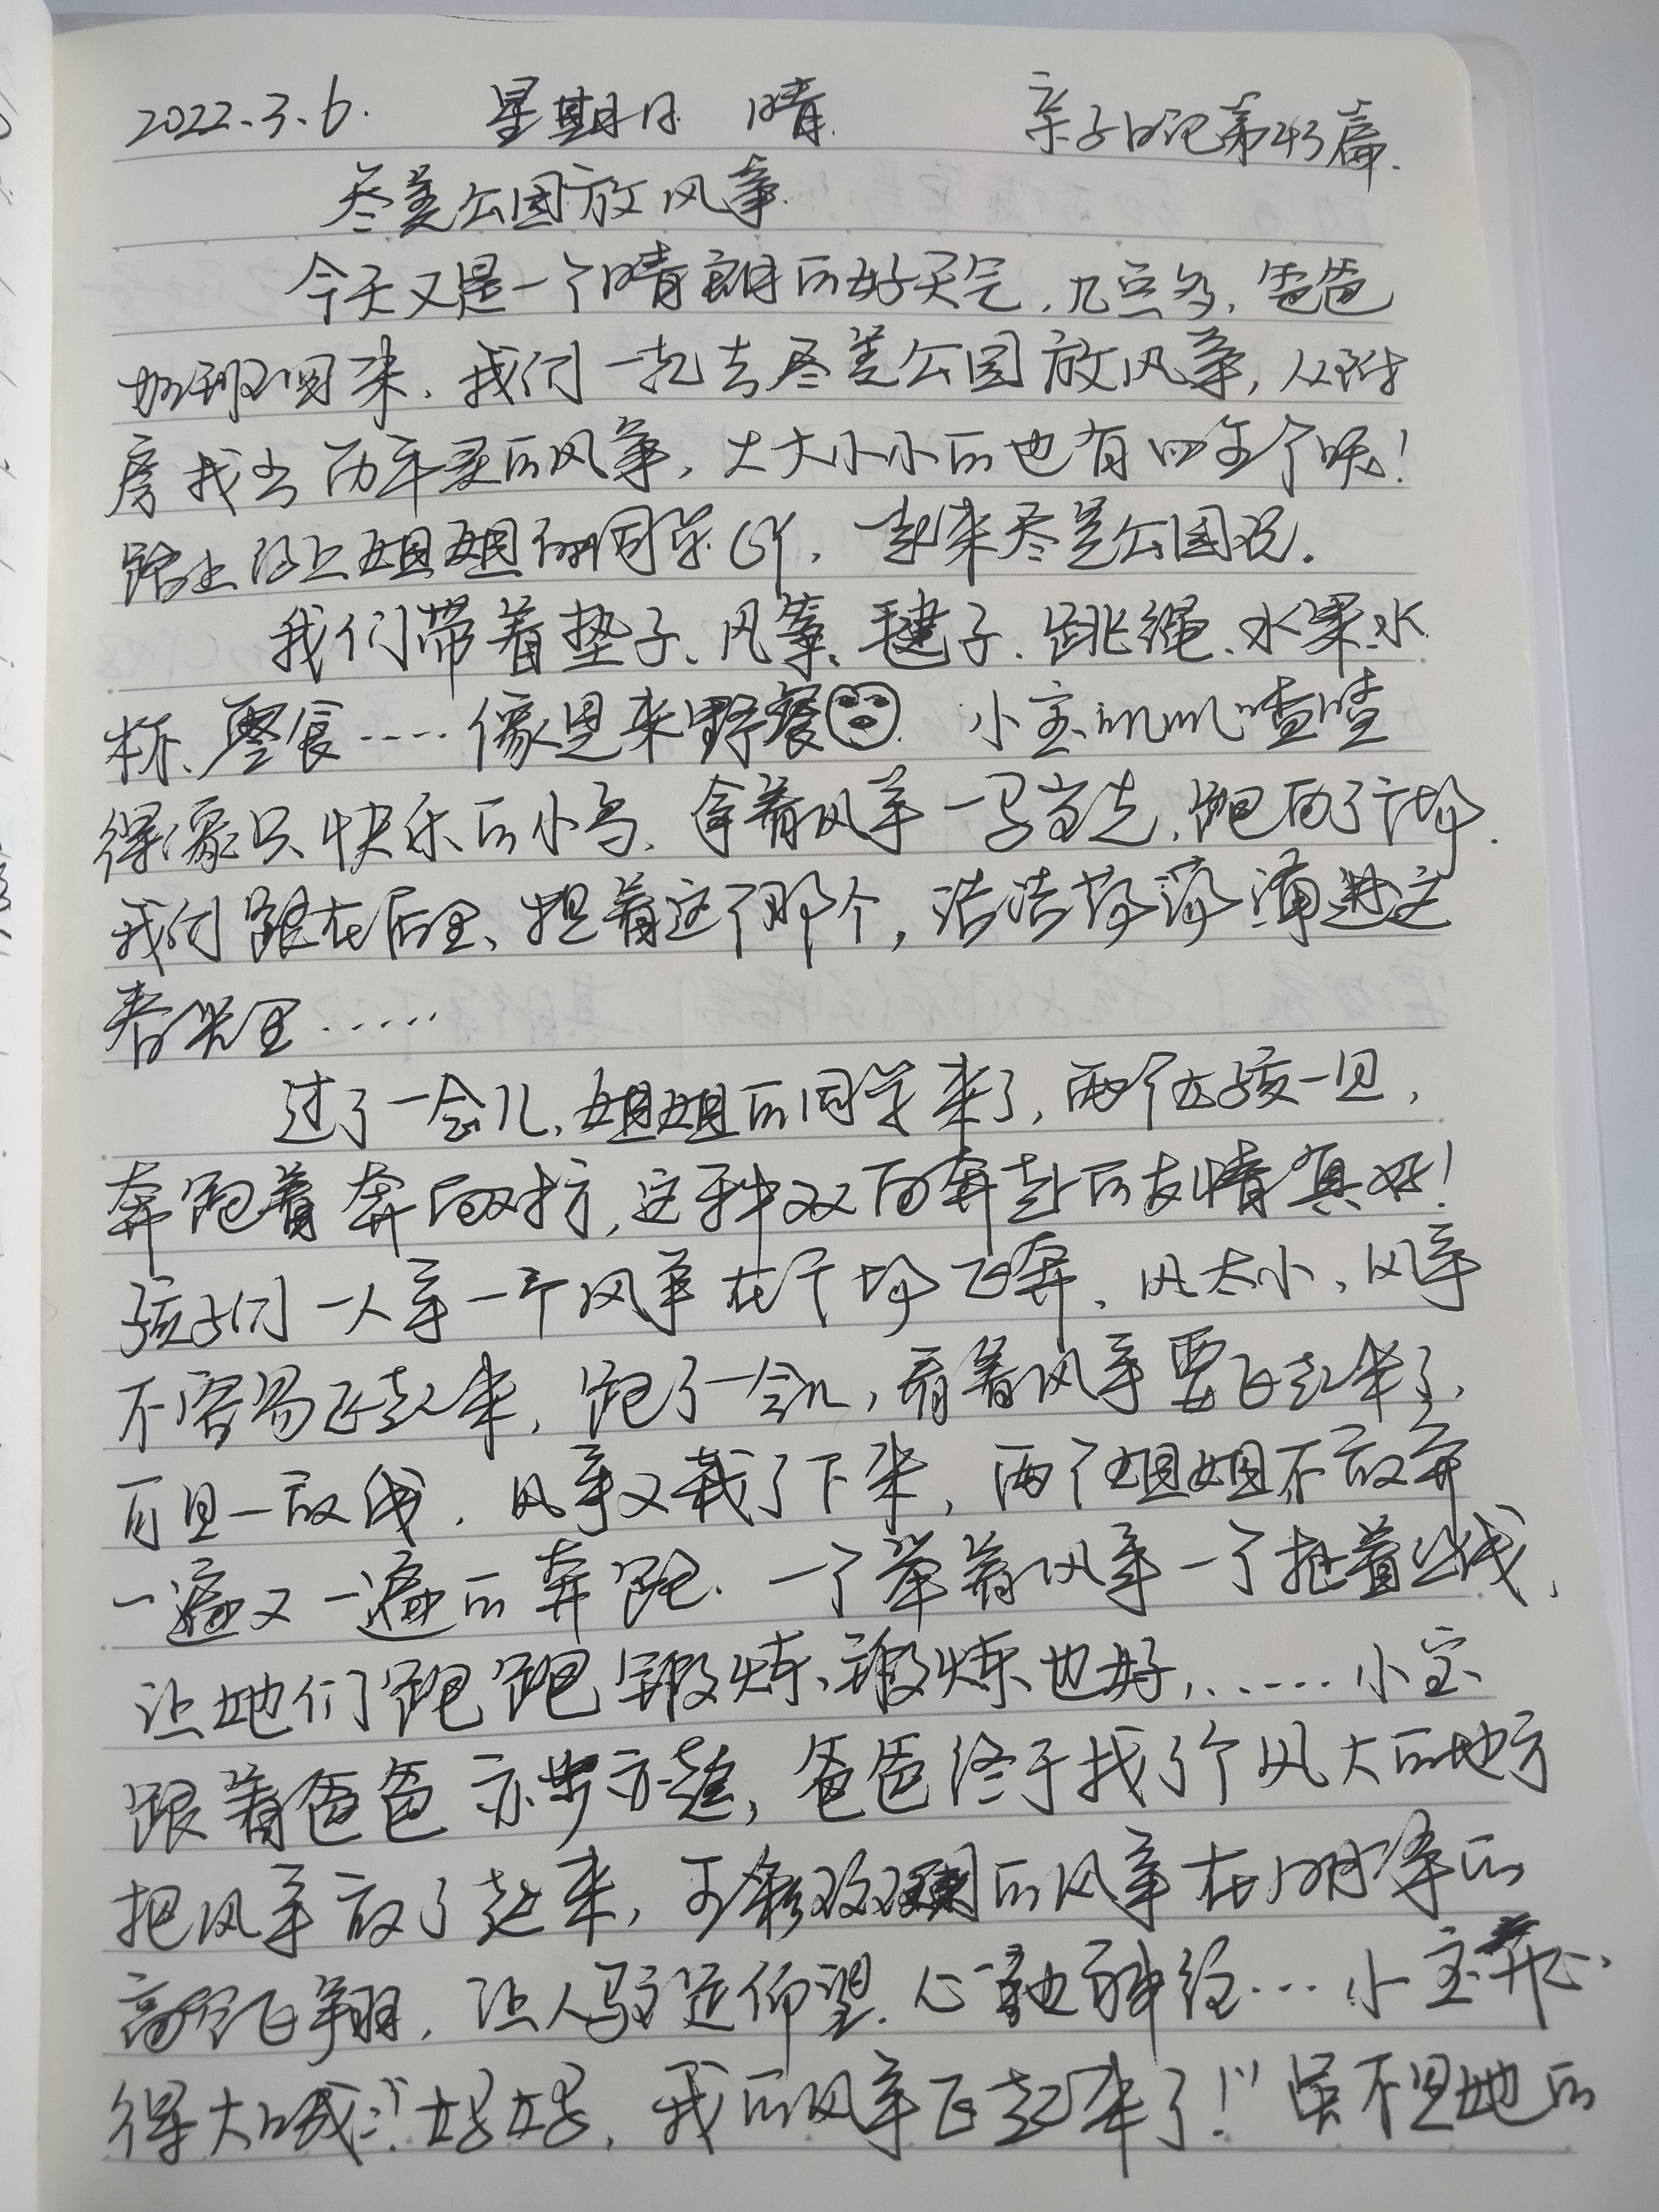 2022.3.6. 星期日 晴. 亲子日记第43篇.
尽美公园放风筝.
今天又是一个晴朗的好天气,九点多,爸爸
加班回来.我们一起去尽美公园放风筝,从附
房找出历年买的风筝,大大小小的也有四五个呢!
路上约上姐姐的同学,一起来尽美公园玩.
我们带着垫子、风筝、毽子、跳绳、水果、水
杯、零食……像是来野餐. 小宝叽叽喳喳
得像只快乐的小鸟.拿着风筝一马当先,跑向了广场.
我们跟在后里、提着这个那个,浩浩荡荡涌进这
春光里……
过了一会儿,姐姐的同学来了,两个女孩一见,
奔跑着奔向对方,这种双向奔赴的友情真好!
孩子们一人拿一个风筝在广场飞奔、风太小,风筝
不容易飞起来,跑了一会儿,看着风筝要飞起来了,
可是一放线.风筝又栽了下来,两个姐姐不放弃
一遍又一遍的奔跑.一个举着风筝一个拉着线,
让她们跑跑锻炼、锻炼也好,……小宝
跟着爸爸亦步亦趋,爸爸终于找了个风大的地方
把风筝放了起来,五彩斑斓的风筝在明净的
高空飞翔,让人驻足仰望.心驰神往…小宝开心
得大喊:"妈妈,我的风筝飞起来了!"虽不是她的